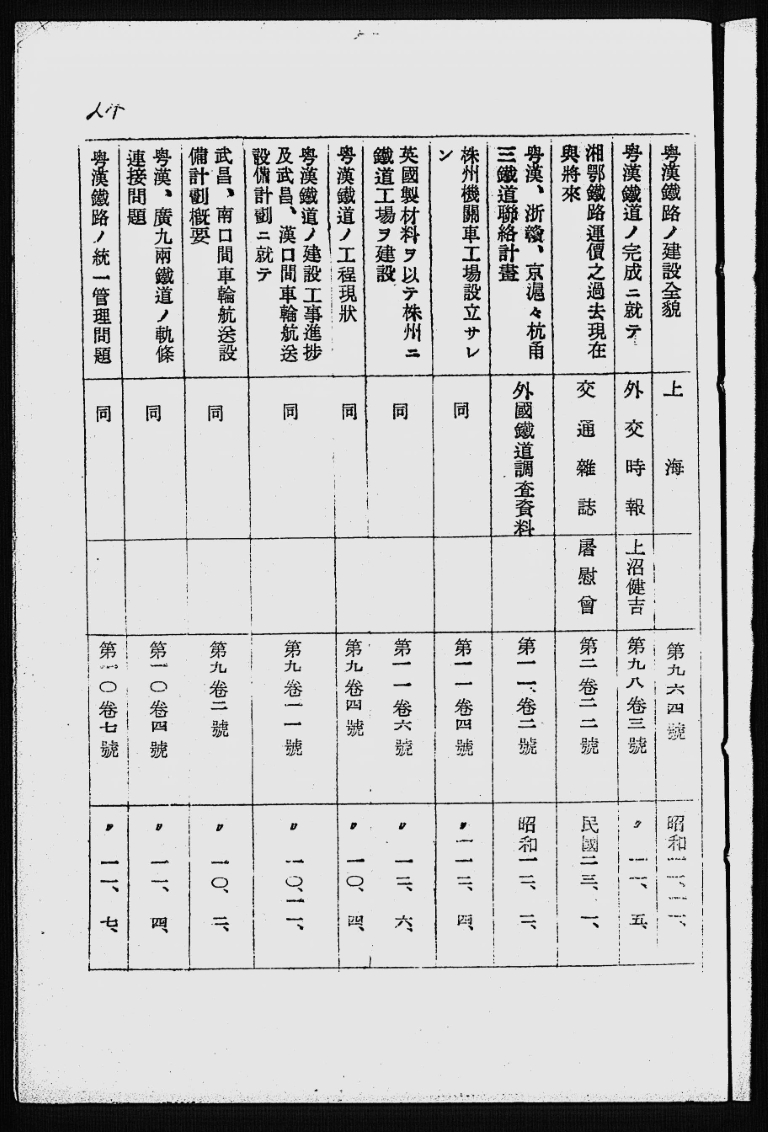 粤漢鐵路ノ建設全貌
上海
第九六四號
昭和
粤漢鐵道ノ完成ニ就テ
外交時報
上沼健吉
第九八卷三號
〃 一一、五、
湘鄂鐵路運價之過去現在
與將來
交通雜誌
屠慰曾
第二卷
號
民國二三、一、
粤漢、浙贛、京滬々杭甬
三鐵道聯絡計畫
外國鐵道調査資料
第一一卷二號
昭和一二、二、
株州機關車工場設立サレ
ン
同
第一一卷四號
〃 一二、四、
英國製材料ヲ以テ株州ニ
鐵道工場ヲ建設
同
第一一卷六號
〃 一二、六、
粤漢鐵道ノ工程現狀
同
第九卷四號
〃 一〇、四、
粤漢鐵道ノ建設工事進捗
及武昌、漢口間車輪航送
設備計劃ニ就テ
同
第九卷一一號
〃 一〇、一一、
武昌、南口間車輪航送設
備計劃概要
同
第九卷二號
〃 一〇、二、
粤漢、廣九兩鐵道ノ軌條
連接問題
同
第一〇卷四號
〃 一一、四、
粤漢鐵路ノ統一管理問題
同
第一〇卷七號
〃 一一、七、